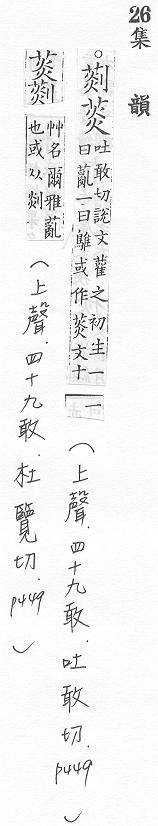 26
集韻
。剡菼吐敢切說文雚之初生一
曰薍一曰騅或作菼文十
一
(上聲.四十九敢.吐敢切.P449)
菼剡艸名爾雅薍
也或从剡
(上聲.四十九敢.杜覽切.P449)